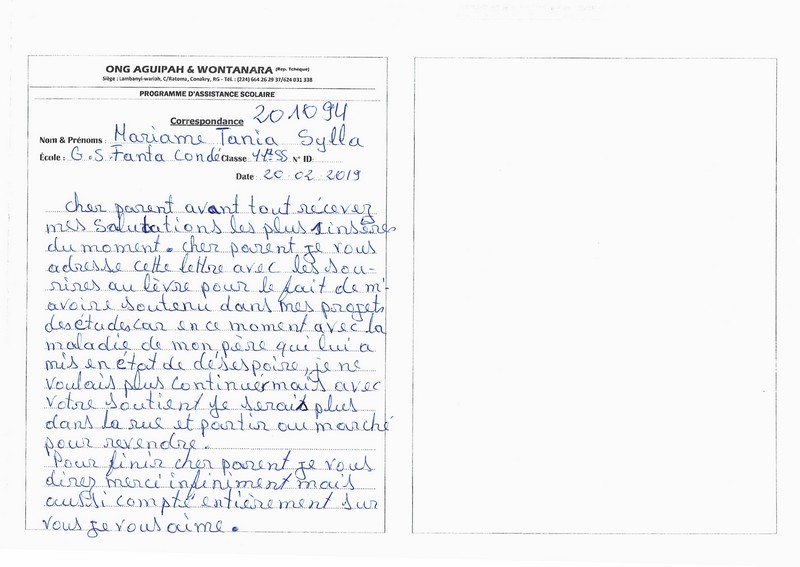 ONG AGUIPAH & WONTANARA (Rep. Tcheque)
Siège : Lambanyi-wariah, C/Ratoma, Conakry, RG - Tél. : (224) 664 26 29 37/624 031 338
PROGRAMME D'ASSISTANCE SCOLAIRE
Correspondance 201094
Nom & Prénoms : Mariame Tania Sylla
École : G.S Fanta Condé Classe 11e SS N° ID
Date 20 02 2019
cher parent avant tout récevez
mes Salutations les plus sinsères
du moment. cher parent je vous
adresse cette lettre avec les sou-
rires au lèvre pour le fait de m'
avoire soutenu dans mes projets
des études car en ce moment avec la
maladie de mon père qui lui a
mis en état de désespoire, je ne
voulais plus continuer mais avec
votre soutient je serais plus
dans la rue et partir au marché
pour revendre.
Pour finir cher parent je vous
direz merci infiniment mais
aussi compte entièrement sur
vous je vous aime.